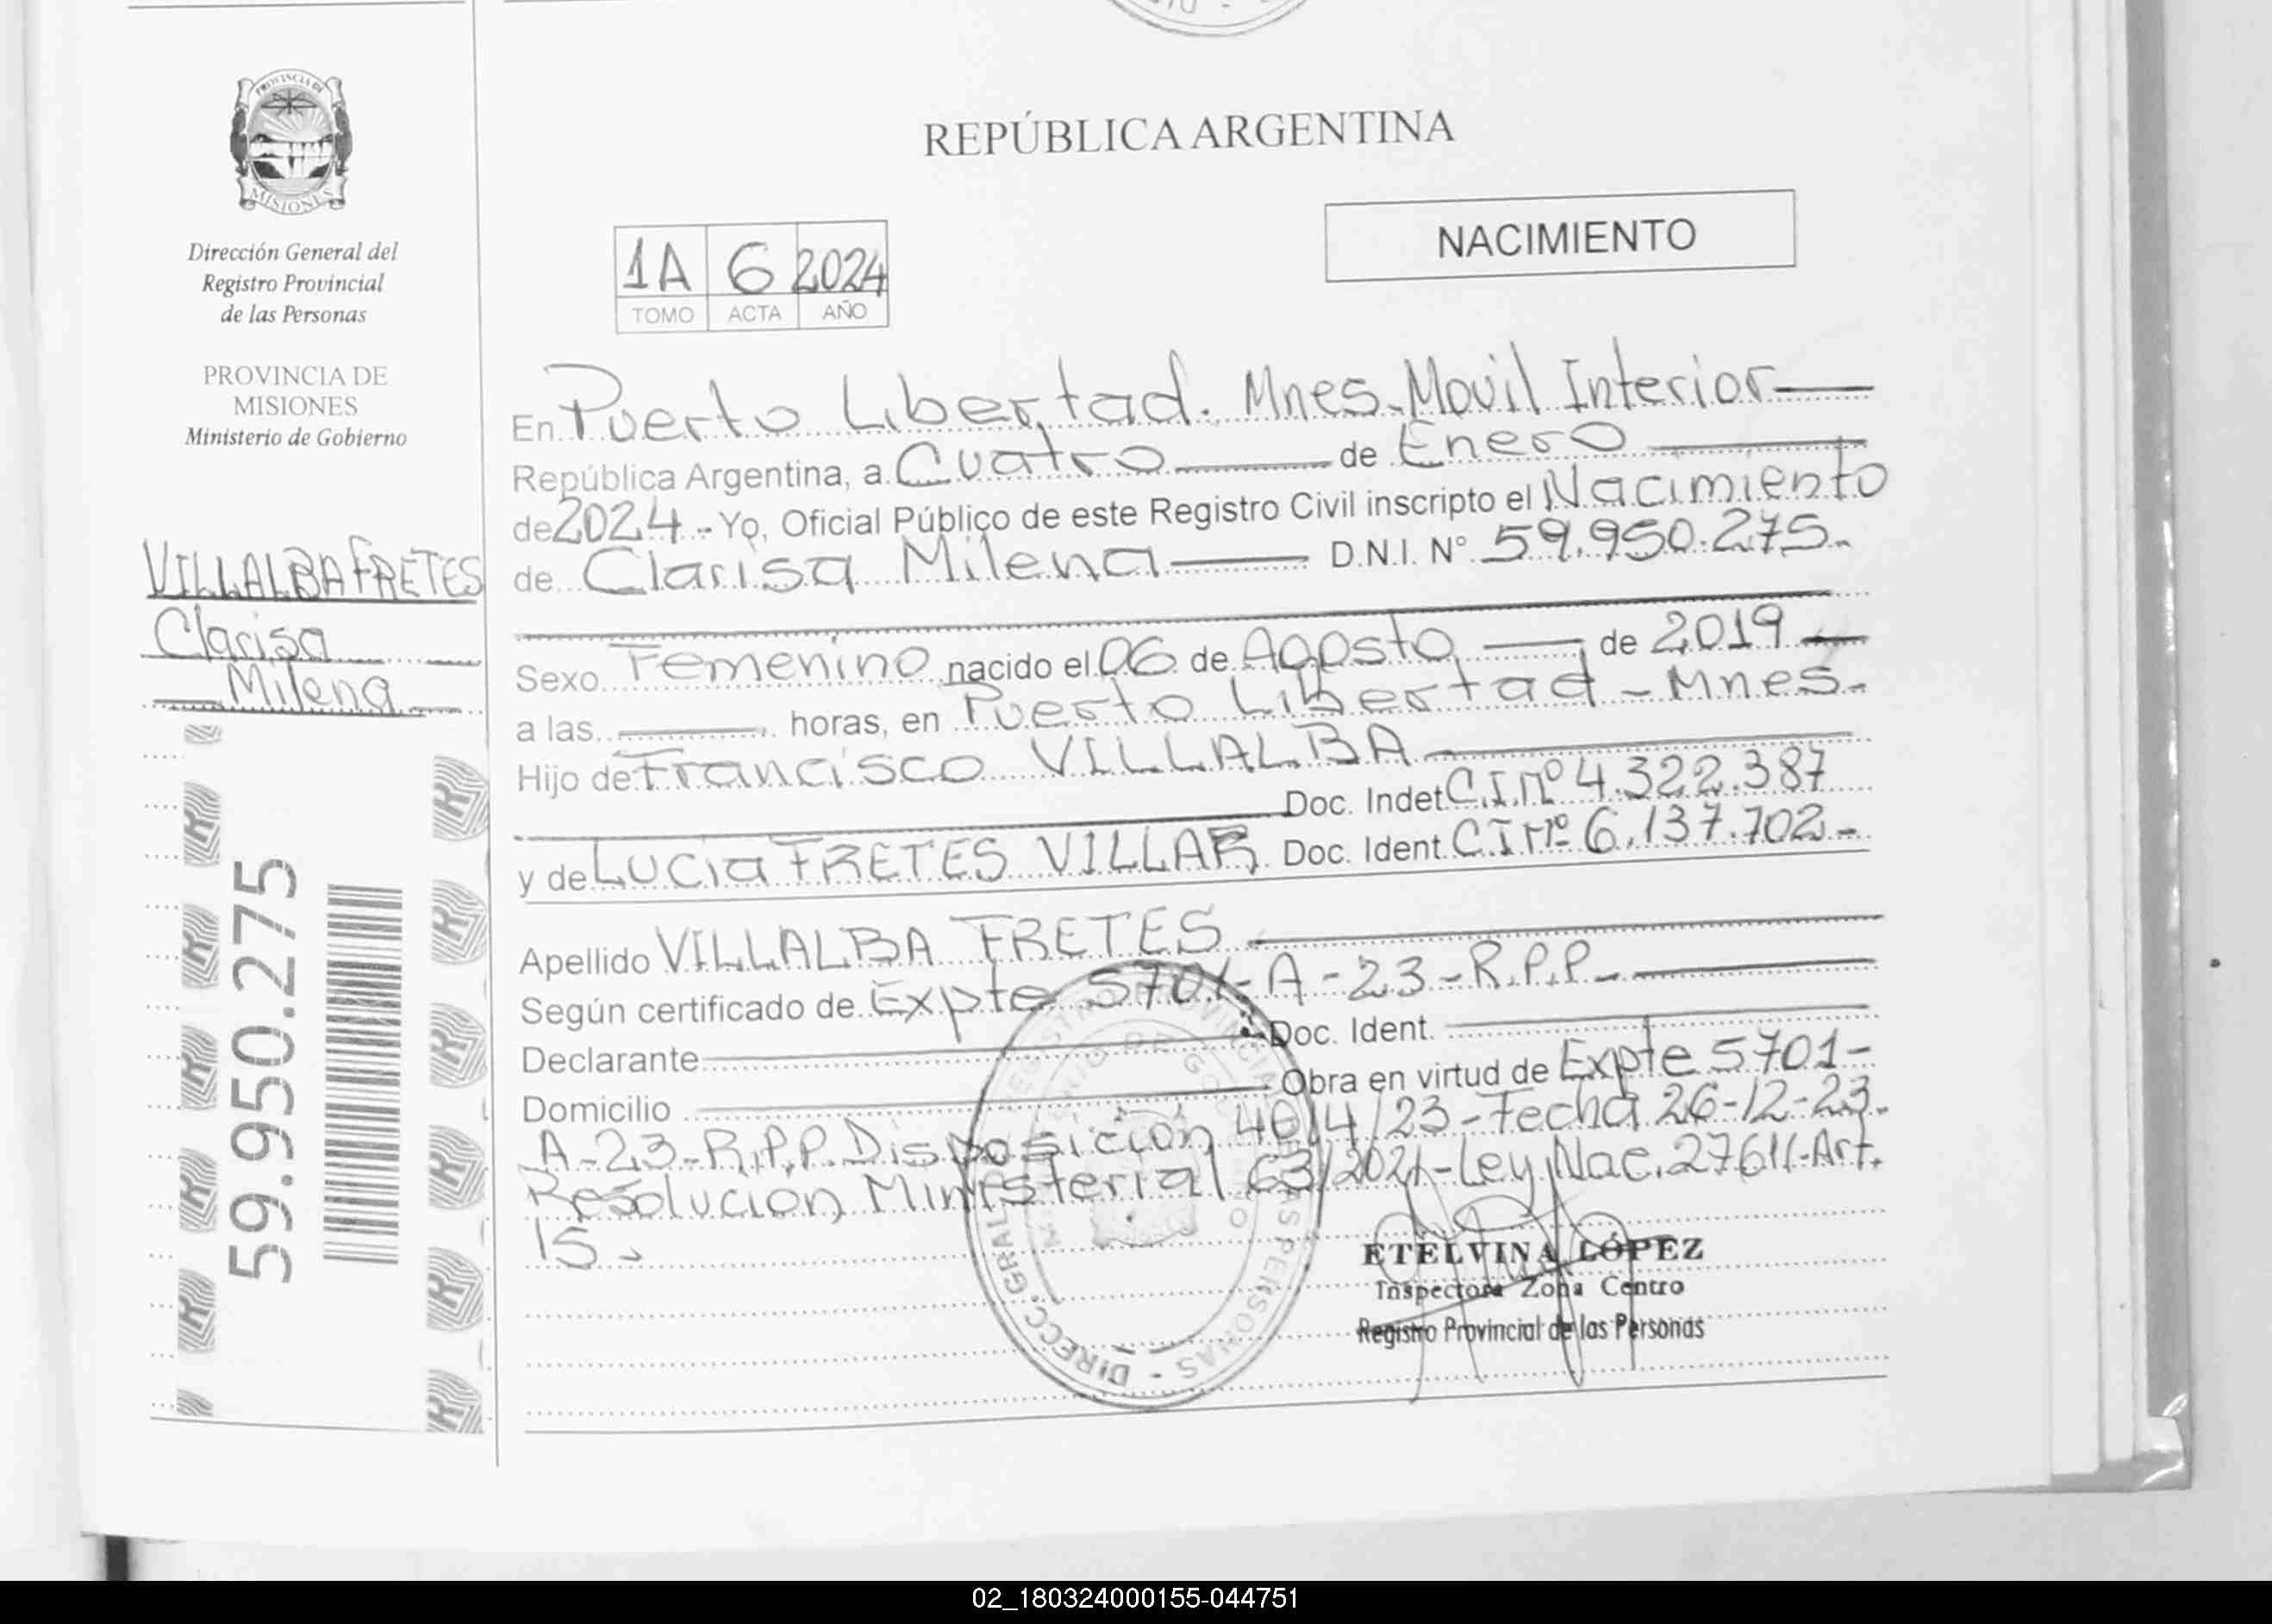 PROVINCIA DE
MISIONES
Dirección General del
Registro Provincial
de las Personas
PROVINCIA DE
MISIONES
Ministerio de Gobierno
VILLALBA FRETES
Clarisa
Milena
59.950.275
REPÚBLICA ARGENTINA
NACIMIENTO
1A 6 2024
TOMO ACTA AÑO
En Puerto Libertad. Mnes. Movil Interior
República Argentina, a Cuatro de Enero
de 2024.- Yo, Oficial Público de este Registro Civil inscripto el Nacimiento
de Clarisa Milena D.N.I. N° 59.950.275.-
Sexo Femenino nacido el 06 de Agosto de 2019
a las horas, en Puerto Libertad - Mnes.-
Hijo de Francisco VILLALBA
Doc. Indet C.I.nº 4.322.387
y de Lucia FRETES VILLAR Doc. Ident. CI Nº 6.137.702-
Apellido VILLALBA FRETES
Según certificado de Expte 5701-A-23-R.P.P.-
Declarante Doc. Ident.
Domicilio Obra en virtud de Expte 5701-
A-23-R.P.P. Disposicion 4014/23-Fecha 26-12-23.
Resolución Ministerial 63/2021-Ley Nac. 27611-Art.
15.-
DIRECC. GRAL. REGISTRO PROVINCIAL DE LAS PERSONAS -
ETELVINA LÓPEZ
Inspectora Zona Centro
Registro Provincial de las Personas
02_180324000155-044751